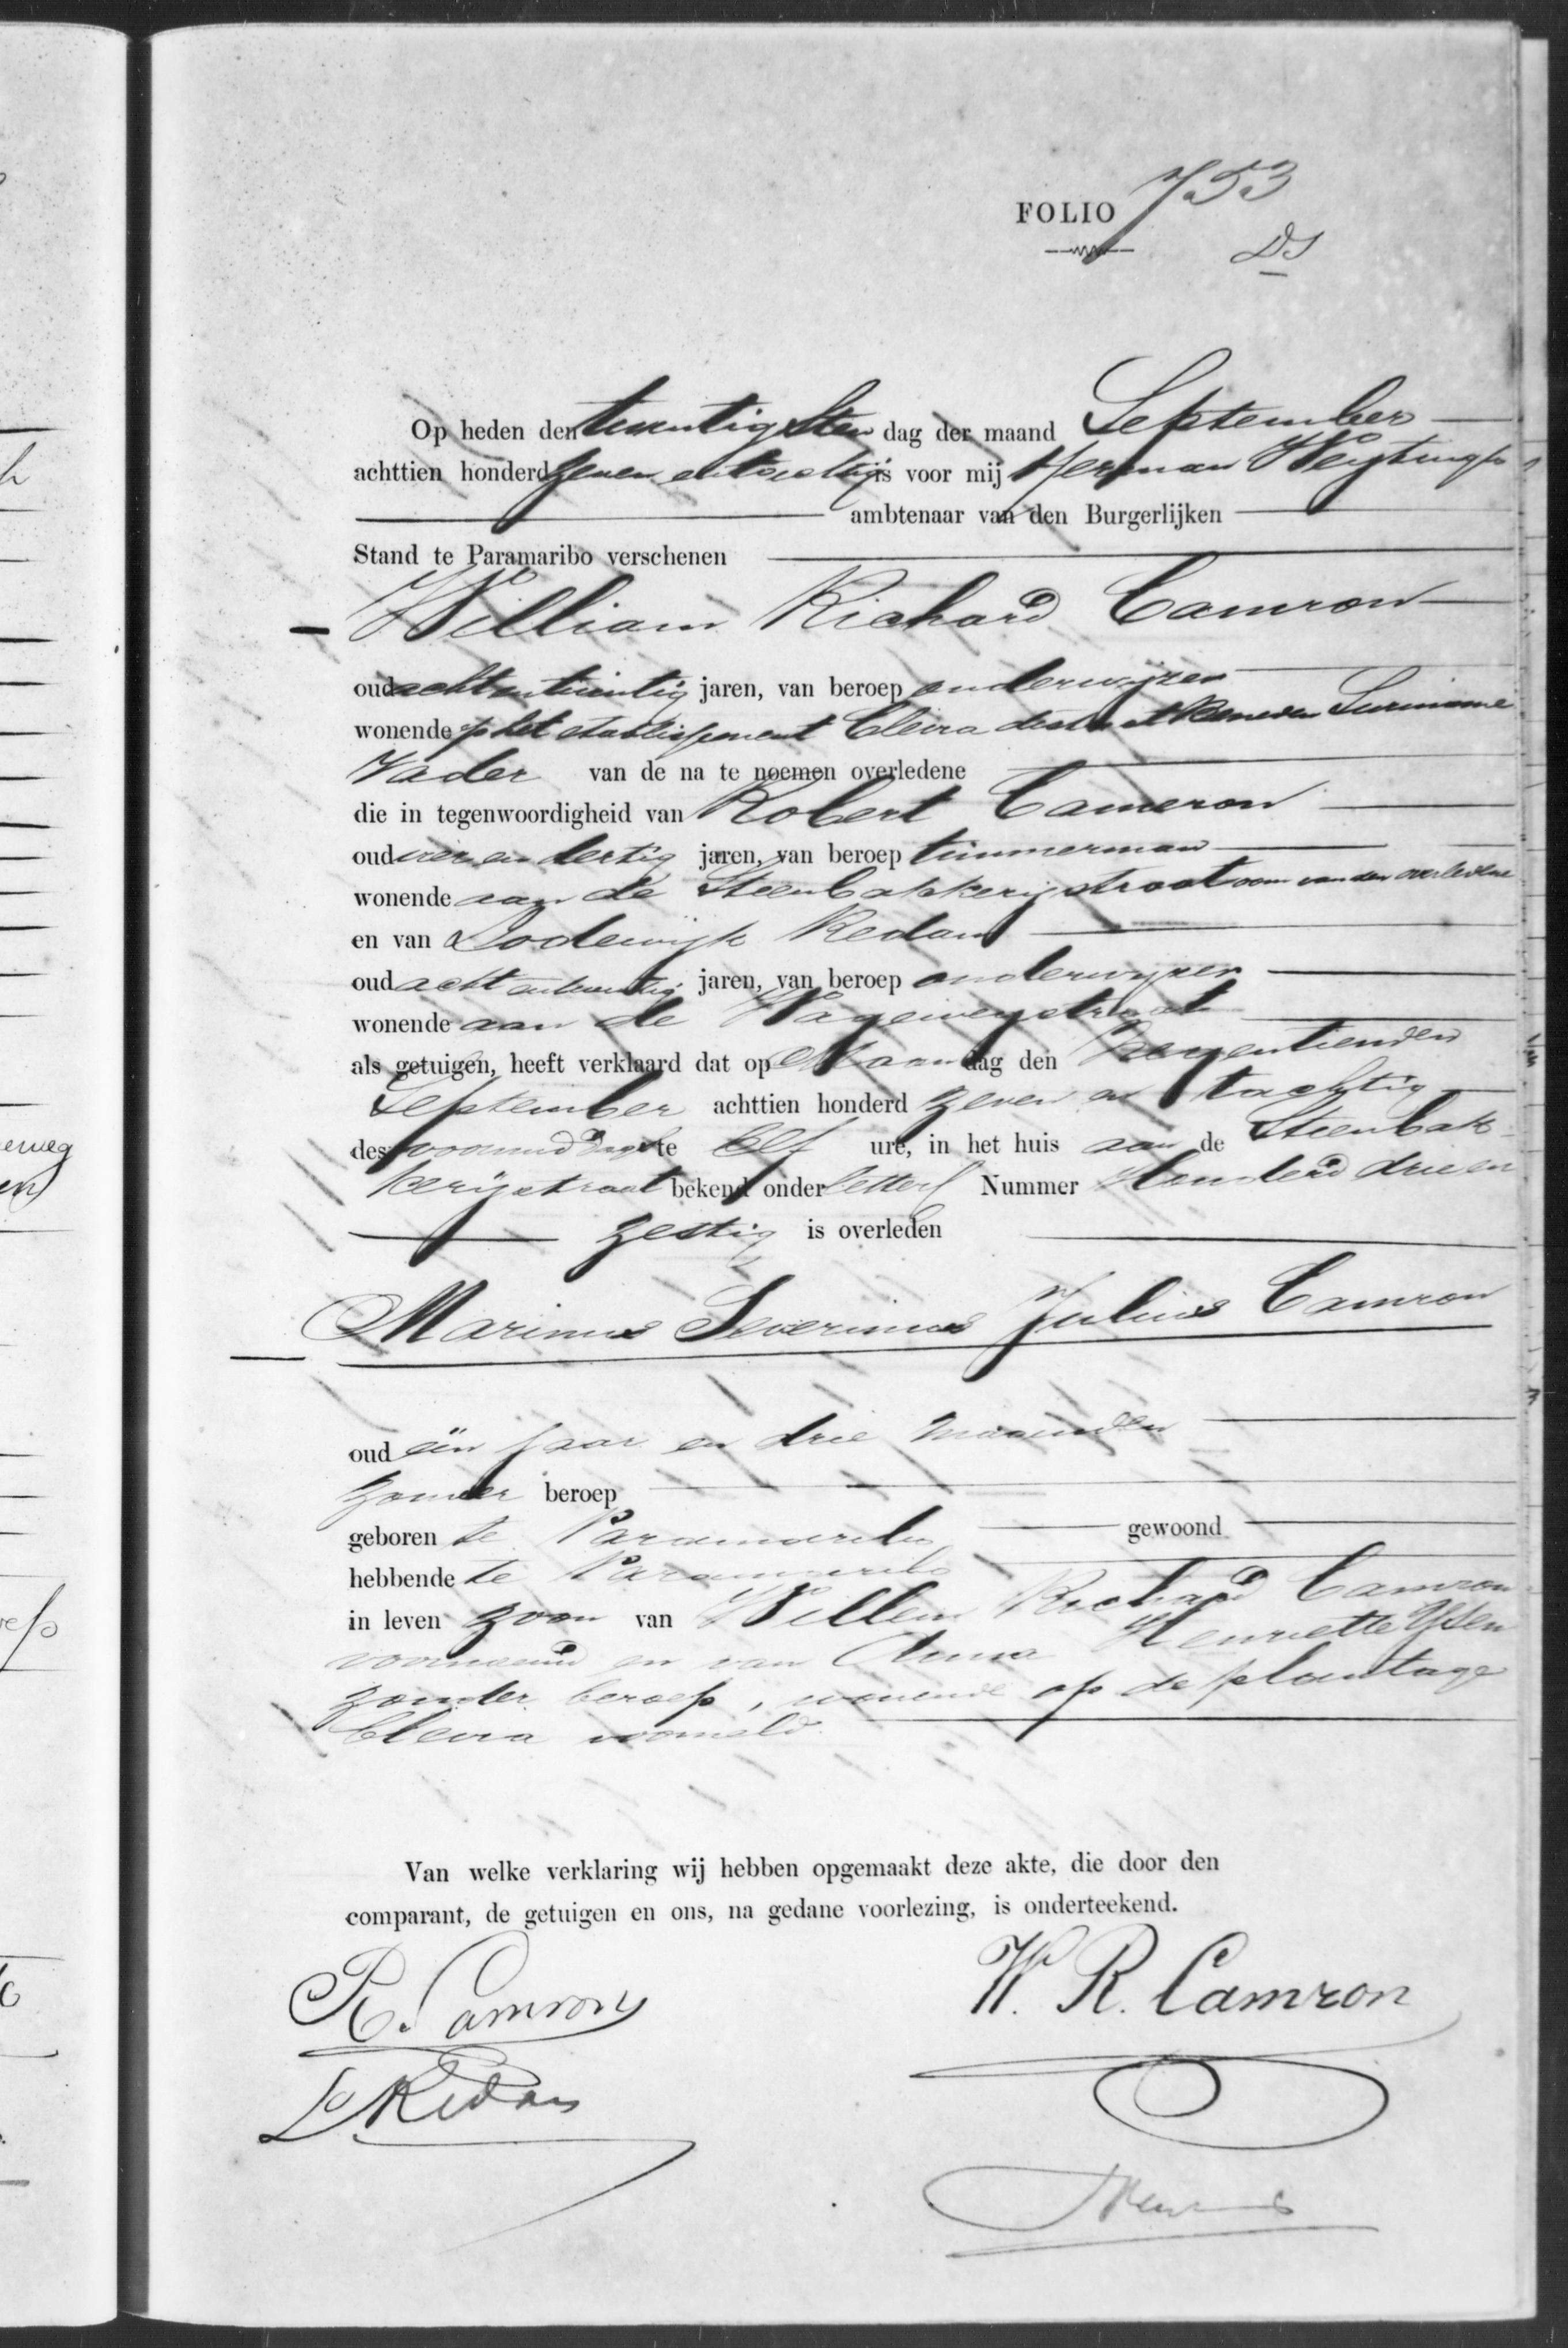 FOLIO 753
DS
Op heden den twintigsten dag der maand September
achttien honderd zeven en tachtig is voor mij Herman Weytingh
ambtenaar van den Burgerlijken
Stand te Paramaribo verschenen
William Richard Camron
oud achtentwintig jaren, van beroep onderwijzer
wonende op het etablissement Clevia Suriname
Vader van de na te noemen overledene
die in tegenwoordigheid van Robert Cameron
oud vier en dertig jaren, van beroep timmerman
wonende aan de Steenbakkerijstraat oom van den overledene
en van Lodewijk Redan
oud acht en twintig jaren, van beroep onderwijzer
wonende aan de Wagenwegstraat
als getuigen, heeft verklaard dat op Maandag den Negentienden
September achttien honderd zeven en tachtig
des voormiddags te Elf ure, in het huis aan de Steenbak
kerijstraat bekend onder letter C Nummer Honderd drie en
zestig is overleden
Marinus Severinus Julius Camron
oud één jaar en drie maanden
zonder beroep
geboren te Paramaribo gewoond
hebbende te Paramaribo
in leven zoon van Willem Richard Camron
voornoemd en van Anna Henriette
zonder beroep, wonende op de plantage
Clevia voormeld.
Van welke verklaring wij hebben opgemaakt deze akte, die door den
comparant, de getuigen en ons, na gedane voorlezing, is onderteekend.
R. Camron
W. R. Camron
L Redan
erweg
en